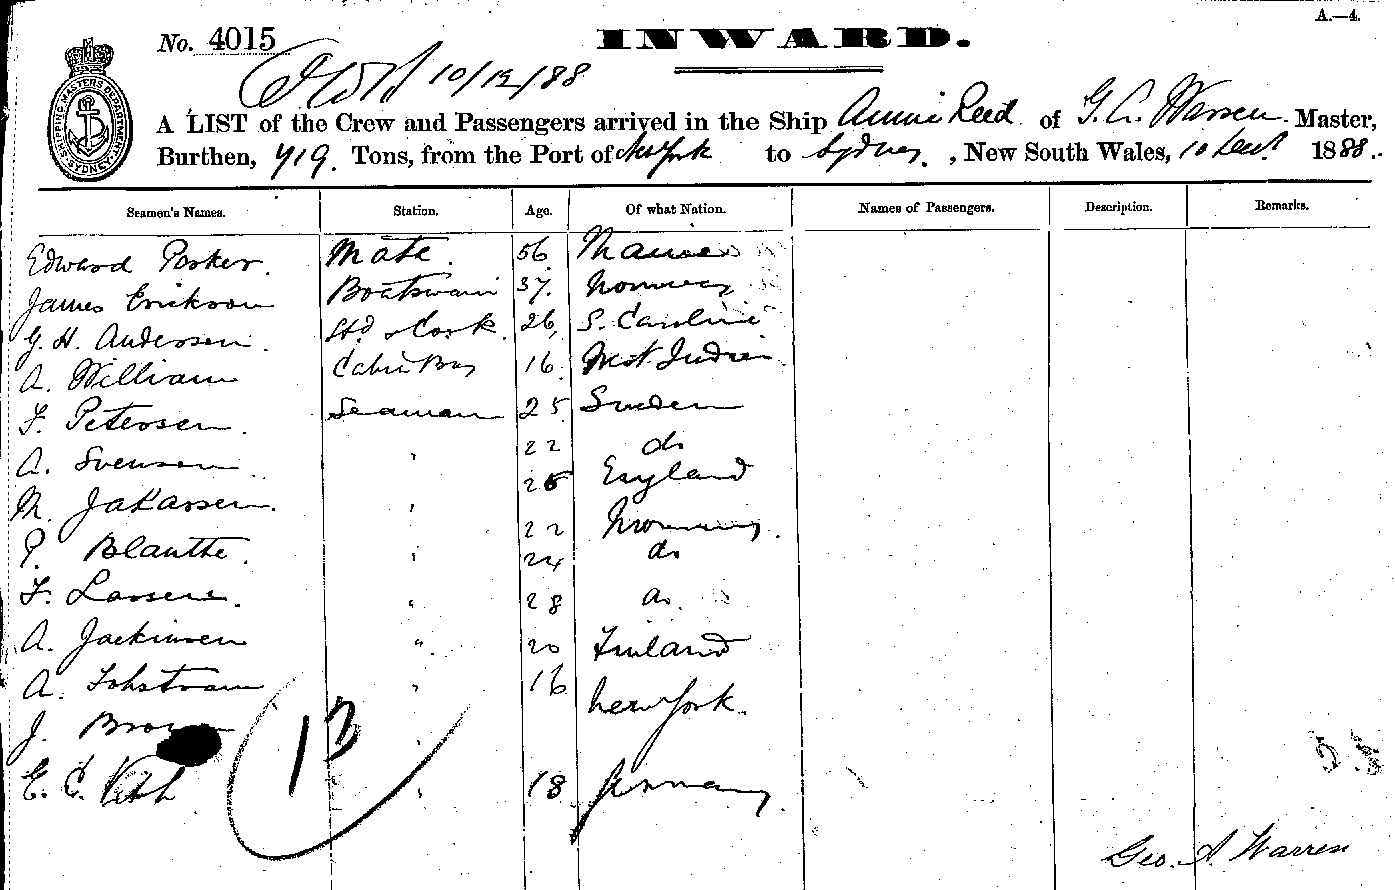 A.—4.
No. 4015
INWARD.
10/12/88
A LIST of the Crew and Passengers arrived in the Ship Annie Reed of G. A. Warren Master,
Burthen, 419. Tons, from the Port of New York to Sydney, New South Wales, 10 Decr 1888.
SHIPPING MASTERS DEPARTMENT SYDNEY
Seamen's Names. Station. Age. Of what Nation. Names of Passengers. Description. Remarks.
Edward Parker. Mate. 56
James Erickson Boatswain 37. Norway
G. H. Andersen. Std & Cook. 26, S. Caroline
A. William Cabin Boy 16. West Indies
F. Petersen. Seaman 25 Sweden
A. Svensen " 22 do
M. Jakassen. " 25 England
P. Blanthe. " 22 Norway.
F. Lassen. " 24 do
A. Jackinsen " 28 do
A. Tohstram " 20 Finland
J. Brown " 16 New York.
E. C. " 18 Germany
13
Geo. A Warren